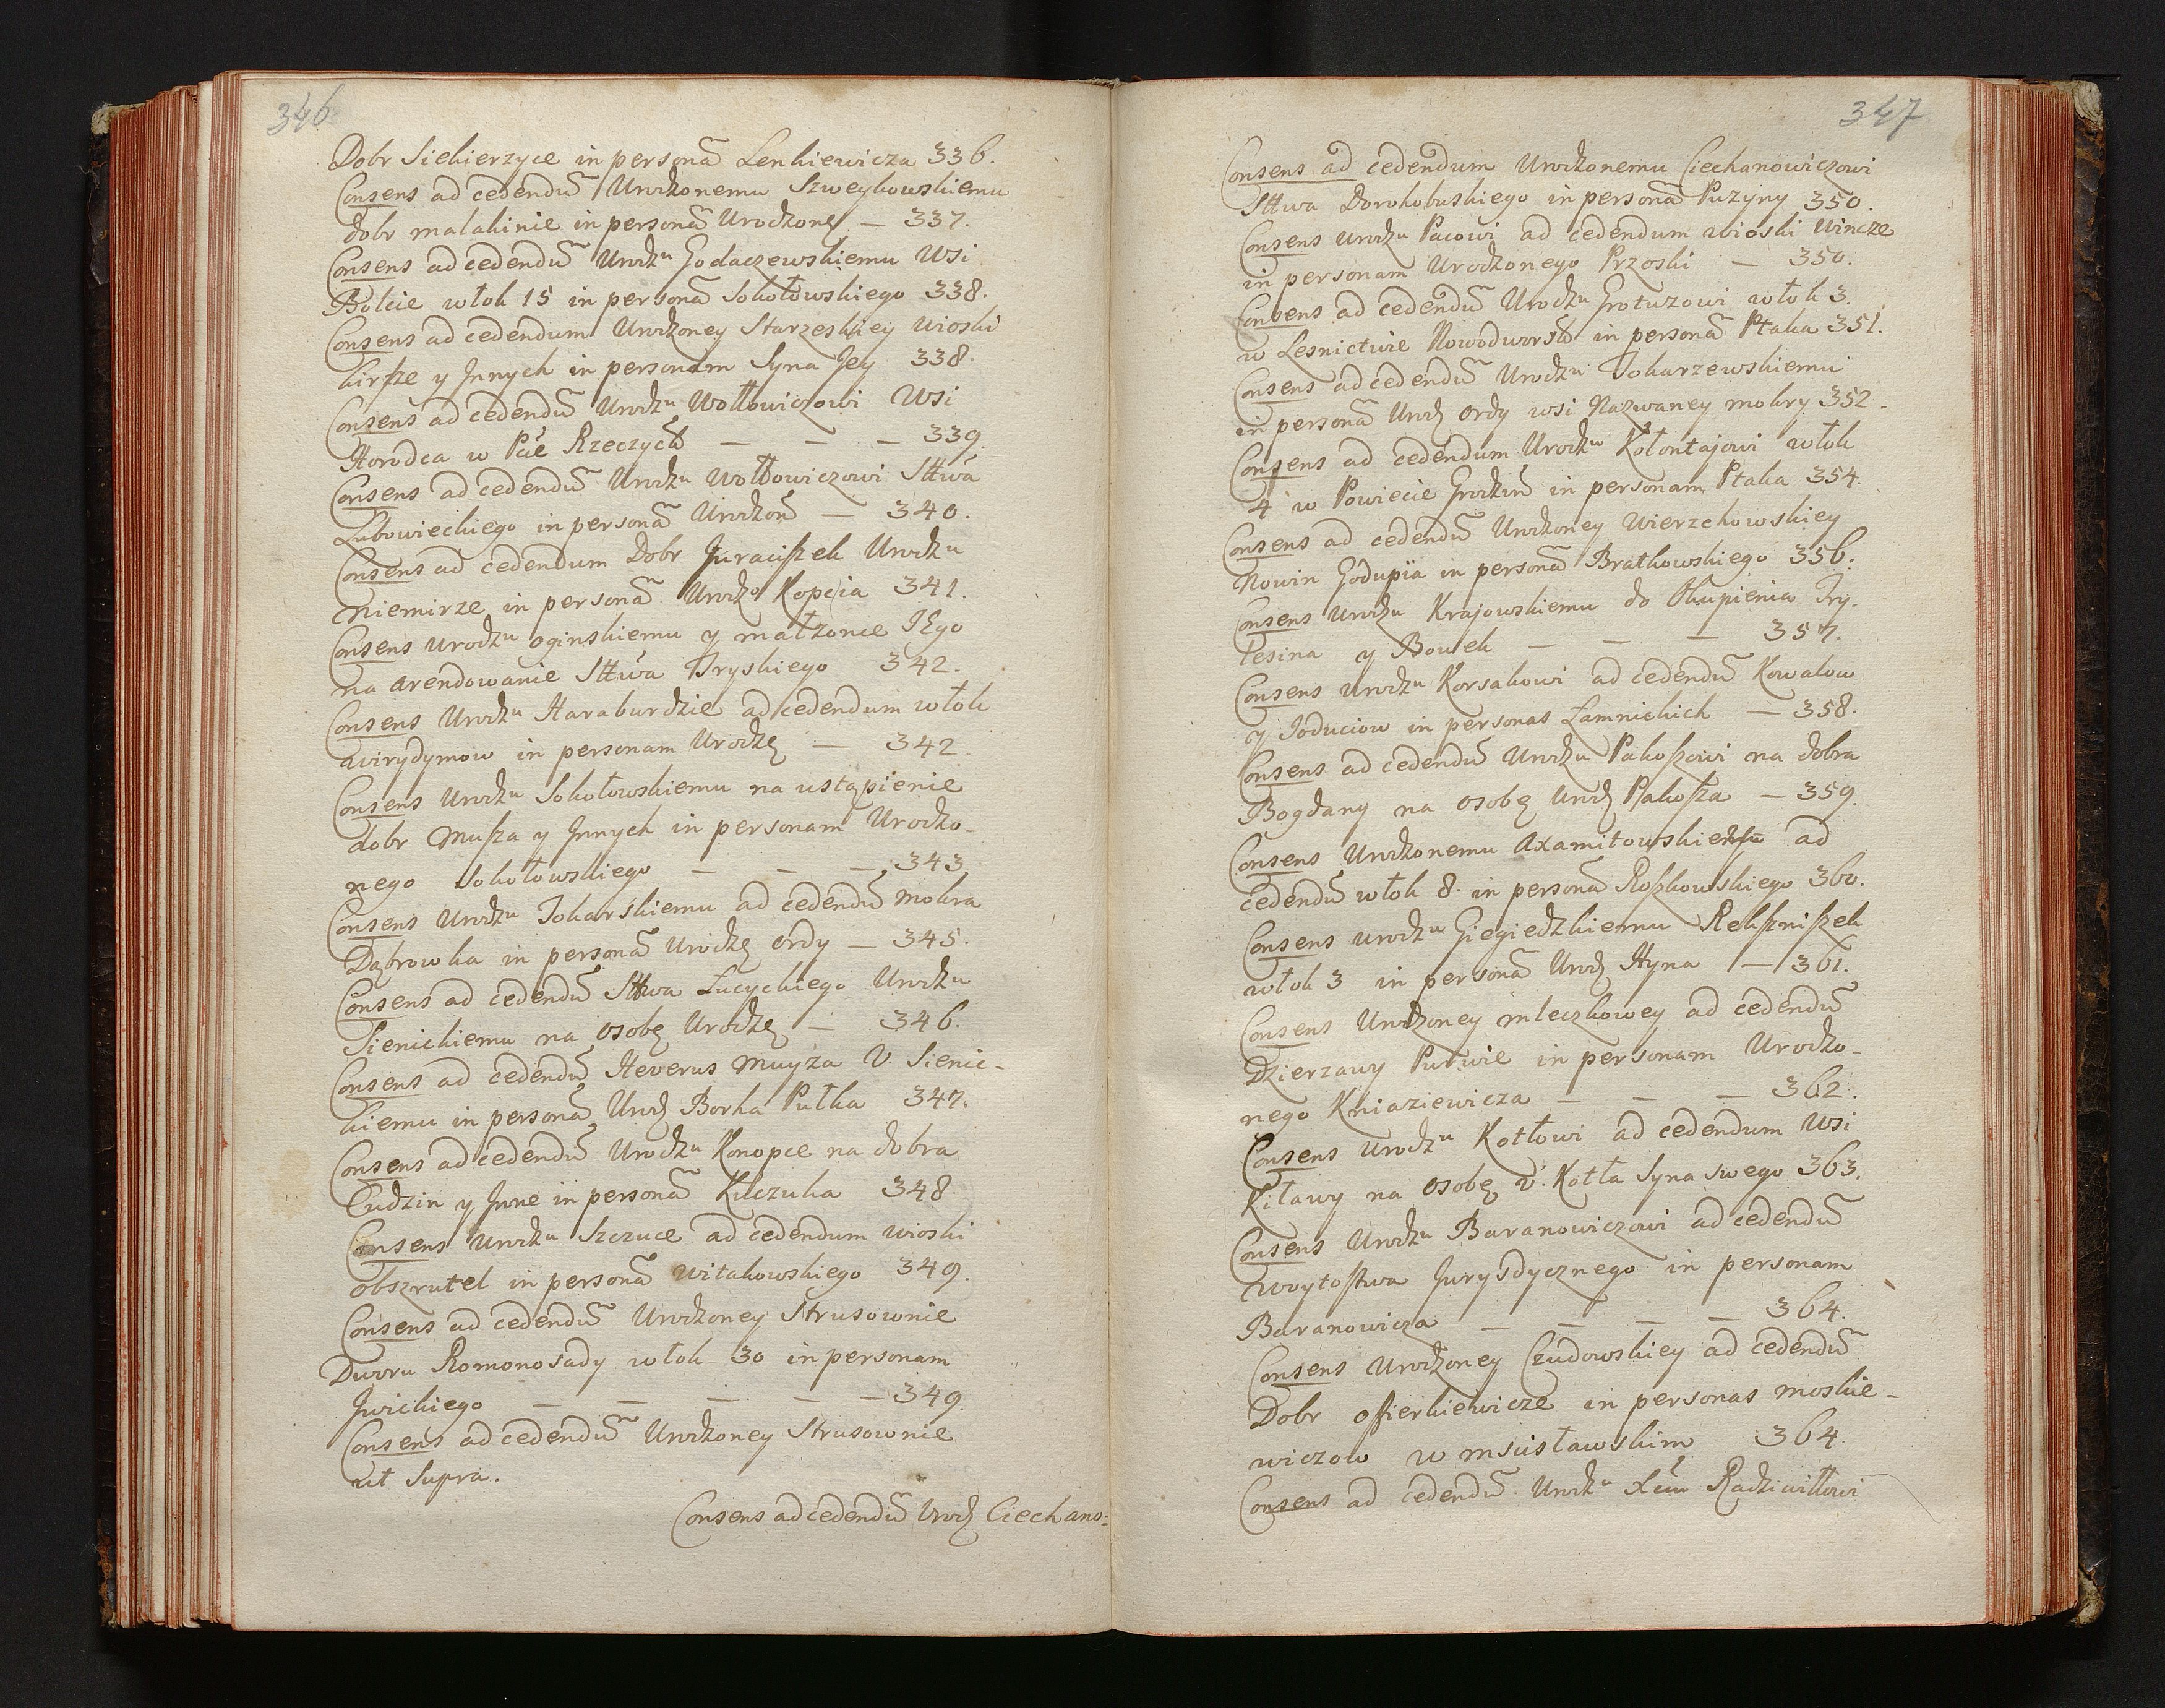 346
Dobr Siekierzyce in personã Lenkiewicza 336.
Consens ad cedendũ Urodzonemu Szweykowskiemu
dobr malakinie in personã Urodzone̢ — 337.
Consens ad cedendũ Urodzu Godaczewskiemu Wsi
Bolcie włok 15 in personã Sokołowskiego 338.
Consens ad cedendum Urodzoney Starzeskiey wioski
kirsze y Jnnych in personam Syna Jey 338.
Consens ad cedendũ Urodzu Wołłowiczowi Wsi
Horodca w Pcie Rzeczyck — — — 339.
Consens ad cedendũ Urodzu Wołłowiczowi Sttwa
Lubowieckiego in personã Urodzoñ — 340.
Consens ad cedendum Dobr Juraciszek Urodzu
niemirze in personã Urodzo Kopcia 341.
Consens Urodzu oginskiemu y małzonce JEgo
na arendowanie Sttwa Dryskiego 342.
Consens Urodzu Haraburdzie ad cedendum włok
awirydymow in personam Urodzę — 342
Consens Urodzu Sokołowskiemu na ustąpienie
dobr Musza y Jnnych in personam Urodzo-
nego Sokołowskiego — — — 343
Consens Urodzu Tokarskiemu ad cedendũ mokra
Dąbrowka in personã Urodzę ordy — 345.
Consens ad cedendũ Sttwa Łucyckiego Urodzu
Sienickiemu na osobę Urodzę — 346.
Consens ad cedendũ Heverus muyza U. Sienic-
kiemu in personã Urodz Borka Pułka 347.
Consens ad cedendũ Urodzu Konopce na dobra
Cudzin y Jnne in personã Kuczuka 348
Consens Urodzu Szczuce ad cedendum wioski
obszrutel in personã Witakowskiego 349.
Consens ad cedendũ Urodzoney Strusownie
Dworu Romonosady włok 30 in personam
Jwickiego — — — — — 349.
Consens ad cedendũ Urodzoney Strusownie
ut Supra.
Consens ad cedendũ Urodz Ciechano:
347
Consens ad cedendum Urodzonemu Ciechanowiczowi
Sttwa Dorohobuskiego in personã Puzyny 350.
Consens Urodzu Pacowi ad cedendum wioski Wincze
in personam Urodzonego Przoski — 350.
Consens ad cedendũ Urodzu Grotuzowi włok 3.
w Lesnictwie Nowodworsk in personã Ptaka 351.
Consens ad cedendũ Urodzu Tokarzewskiemu
in personã Urodz Ordy wsi Nazwaney mokry 352.
Consens ad cedendum Urodzu Kołontajowi włok
4 w Powiecie Grodzen in personam Ptaka 354.
Consens ad cedendũ Urodzoney Wierzchowskiey
Nowin Godupia in personã Bratkowskiego 356.
Consens Urodzu Krajowskiemu do Okupienia Try-
lesina y Bouek — — 357.
Consens Urodzu Korsakowi ad cedendũ Kowalow
y Joduciow in personas Łamnickich — 358.
Consens ad cedendũ Urodzu Pakoszowi na dobra
Bogdany na osobę Urodz Pakosza — 359.
Consens Urodzonemu Axamitowskiemu ad
cedendũ włok 8. in personã Roszkowskiego 360.
Consens Urodzu Giegiedzkiemu Rekszniszek
włok 3 in personã Urodz Hyna — 361.
Consens Urodzoney mleczkowey ad cedendũ
Dzierzawy Purwie in personam Urodzo-
nego Kniaziewicza — — — 362.
Consens Urodzu Kotłowi ad cedendum Wsi
Kitawy na osobę U. Kotła Syna swego 363.
Consens Urodzu Baranowiczowi ad cedendũ
Woytostwa Jurysdycznego in personam
Baranowicza — — — — 364.
Consens Urodzoney Czudowskiey ad cedendũ
Dobr Ofierkiewicze in personas moskie-
wiczow w mscisławskim 364.
Consens ad cedendũ Urodzu Xciu Radziwiłłowi